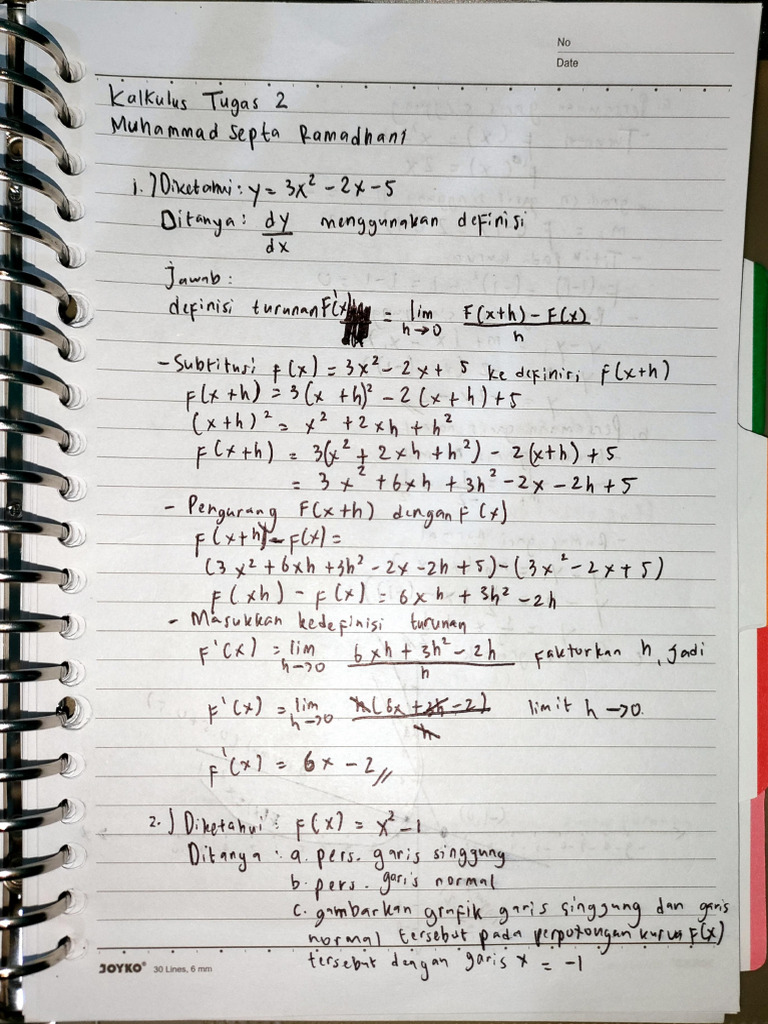 No
Date
Kalkulus Tugas 2
Muhammad Septa Ramadhani
1.) Diketahui: y = 3x² - 2x - 5
Ditanya: dy/dx menggunakan definisi
Jawab:
definisi turunan F(x) = lim h→0 F(x+h) - F(x) / h
- Subtitusi f(x) = 3x² - 2x + 5 ke definisi f(x+h)
f(x+h) = 3(x+h)² - 2(x+h) + 5
(x+h)² = x² + 2xh + h²
F(x+h) = 3(x² + 2xh + h²) - 2(x+h) + 5
= 3x² + 6xh + 3h² - 2x - 2h + 5
- Pengurang F(x+h) dengan F(x)
F(x+h) - F(x) =
(3x² + 6xh + 3h² - 2x - 2h + 5) - (3x² - 2x + 5)
F(xh) - F(x) = 6xh + 3h² - 2h
- Masukkan kedefinisi turunan
F'(x) = lim h→0 6xh + 3h² - 2h / h Faktorkan h, jadi
F'(x) = lim h→0 h(6x + 3h - 2) / h limit h→0.
F'(x) = 6x - 2 //
2.) Diketahui: F(x) = x² - 1
Ditanya: a. pers. garis singgung
b. pers. garis normal
c. gambarkan grafik garis singgung dan garis
normal tersebut pada perpotongan kurva F(x)
tersebut dengan garis x = -1
JOYKO® 30 Lines, 6 mm